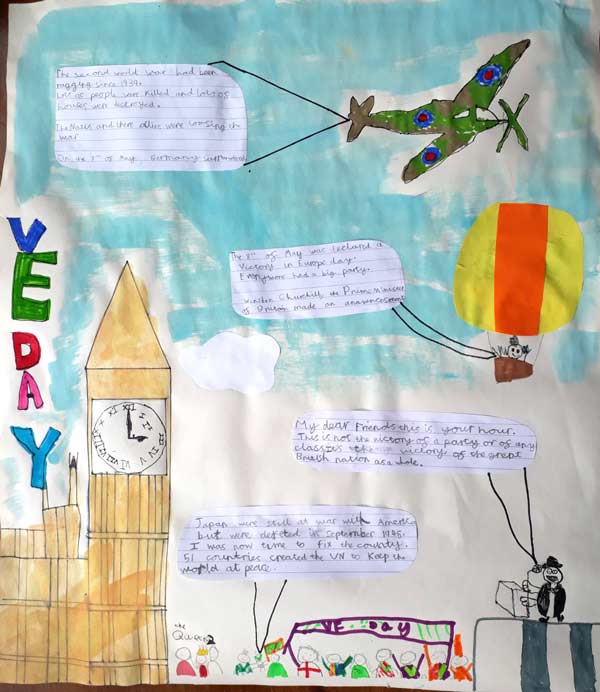 The second world war had been
ragging since 1939.
Lots of people were killed and lots of
houses were destroyed.
The Nazis and there allies were loosing the
war
On the 8th of May Germany surrendered
VE
DAY
The 8th of May was declared a
Victory in Europe day.
Everyone had a big party.
Winston Churchill, the Prime Minister
of Britain made an anouncement
My dear Friends this is your hour.
This is not the victory of a party or of any
class its the victory of the great
British nation as a whole.
Japan were still at war with America
but were defeted in September 1945.
I was now time to fix the county.
51 countries created the UN to keep the
world at peace.
the
Queen
VE Day
XII